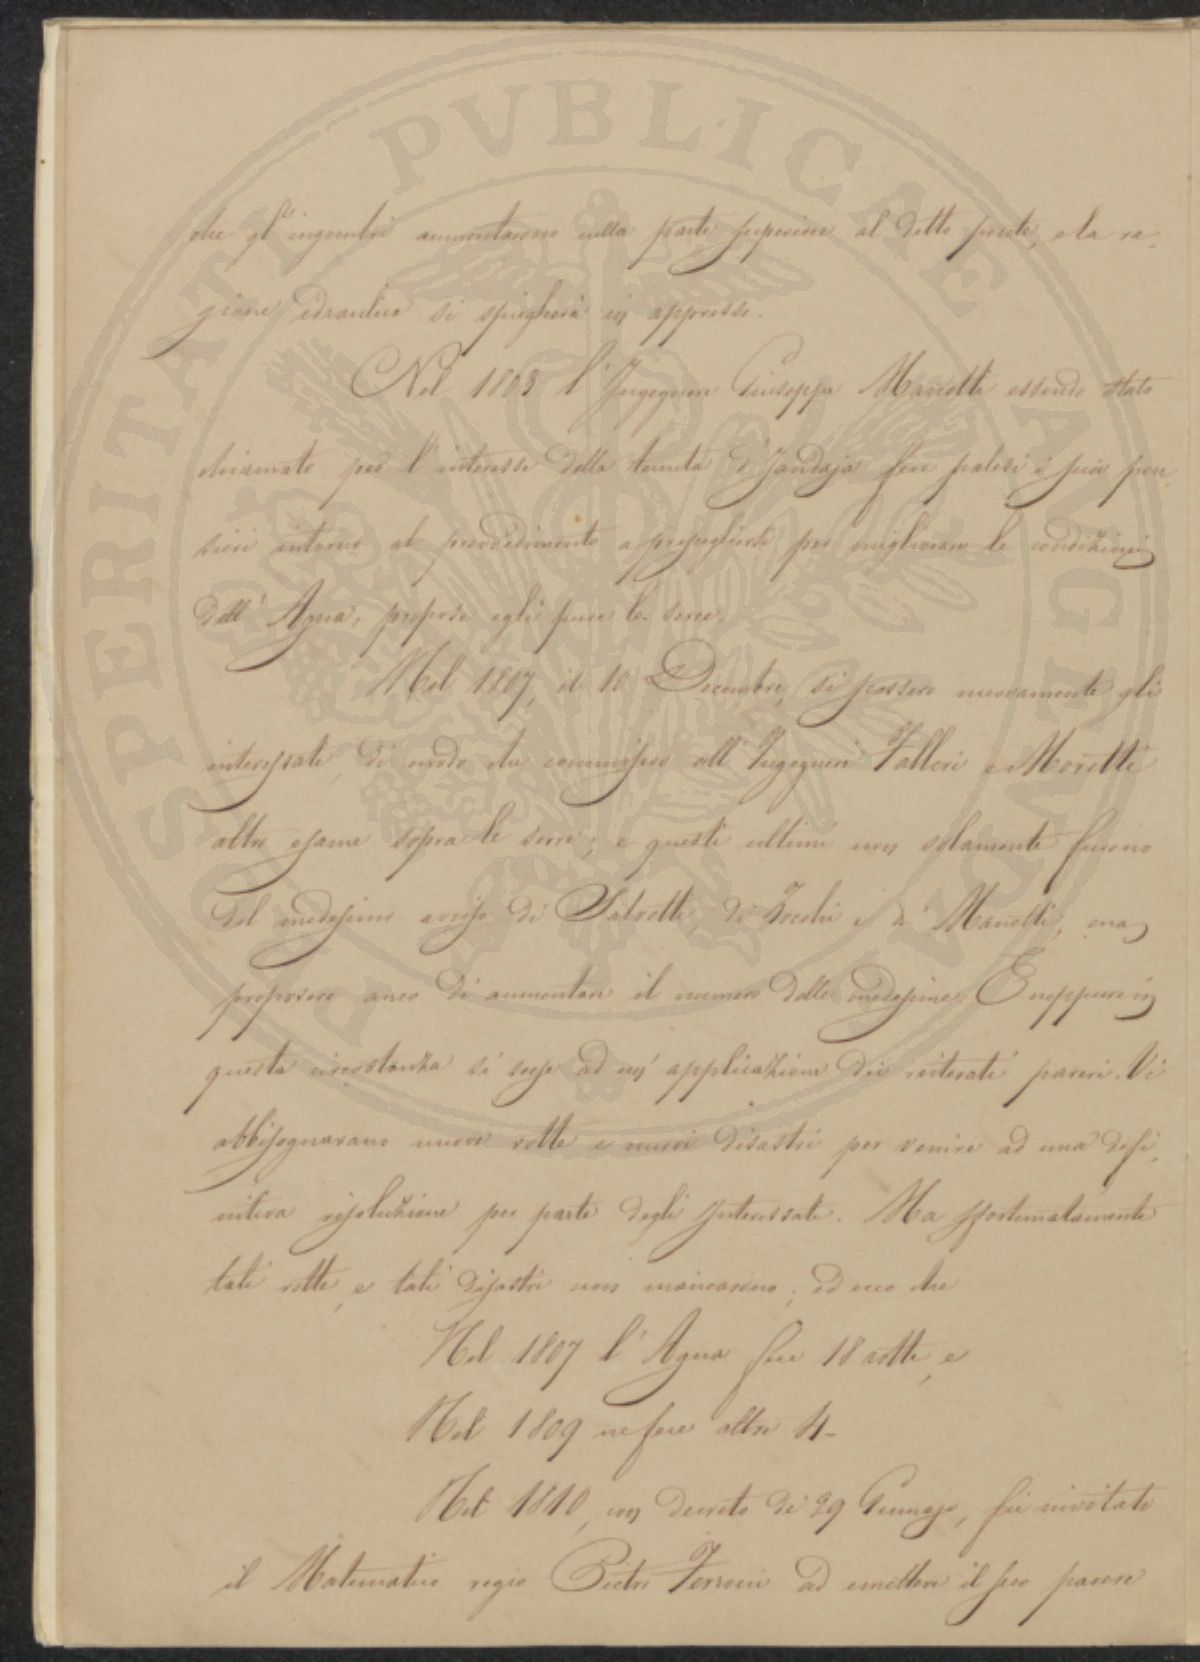 che gl'ingombri aumentarono nella parte superiore al detto ponte, e la ra-
gione idraulica si spiegherà in appresso.
Nel 1803 l'Ingegnere Giuseppe Manetti essendo stato
chiamato per l'interesse della tenuta d' fece palesi i suoi pen-
sieri intorno al provvedimento a prescegliersi per migliorare le condizioni
dell' Agna, propose egli pure le serre.
Nel 1807, il 10 Decembre, si scossero nuovamente gli
interessati, di modo che commisero all' Ingegneri e Moretti
altro esame sopra le serre; e questi ultimi non solamente furono
del medesimo avviso di Salvetti, di Zocchi e di Manetti, ma
proposero anco di aumentare il numero delle medesime. E neppure in
questa circostanza si scese ad un' applicazione dei reiterati pareri. Vi
abbisognavano nuove rotte e nuovi disastri per venire ad una defi-
nitiva risoluzione per parte degli Interessati. Ma sfortunatamente
tali rotte, e tali disastri non mancarono; ed ecco che
Nel 1807 l' Agna fece 18 rotte, e
Nel 1809 ne fece altre 4-
Nel 1810, con decreto di 29 Gennajo, fu invitato
il Matematico regio Pietro Ferroni ad emettere il suo parere
PROSPERITATI PVBLICAE AVGENDAE